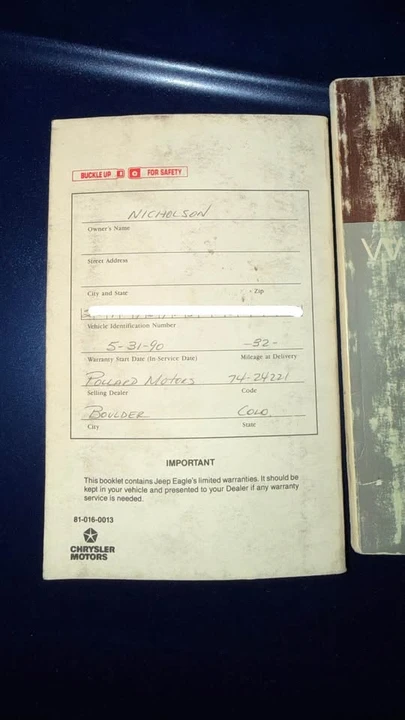 BUCKLE UP FOR SAFETY
NICHOLSON
Owner's Name
Street Address
City and State Zip
Vehicle Identification Number
5-31-90 -32-
Warranty Start Date (In-Service Date) Mileage at Delivery
POLLARD MOTORS 74-24221
Selling Dealer Code
BOULDER COLO
City State
IMPORTANT
This booklet contains Jeep Eagle's limited warranties. It should be
kept in your vehicle and presented to your Dealer if any warranty
service is needed.
81-016-0013
CHRYSLER
MOTORS
W